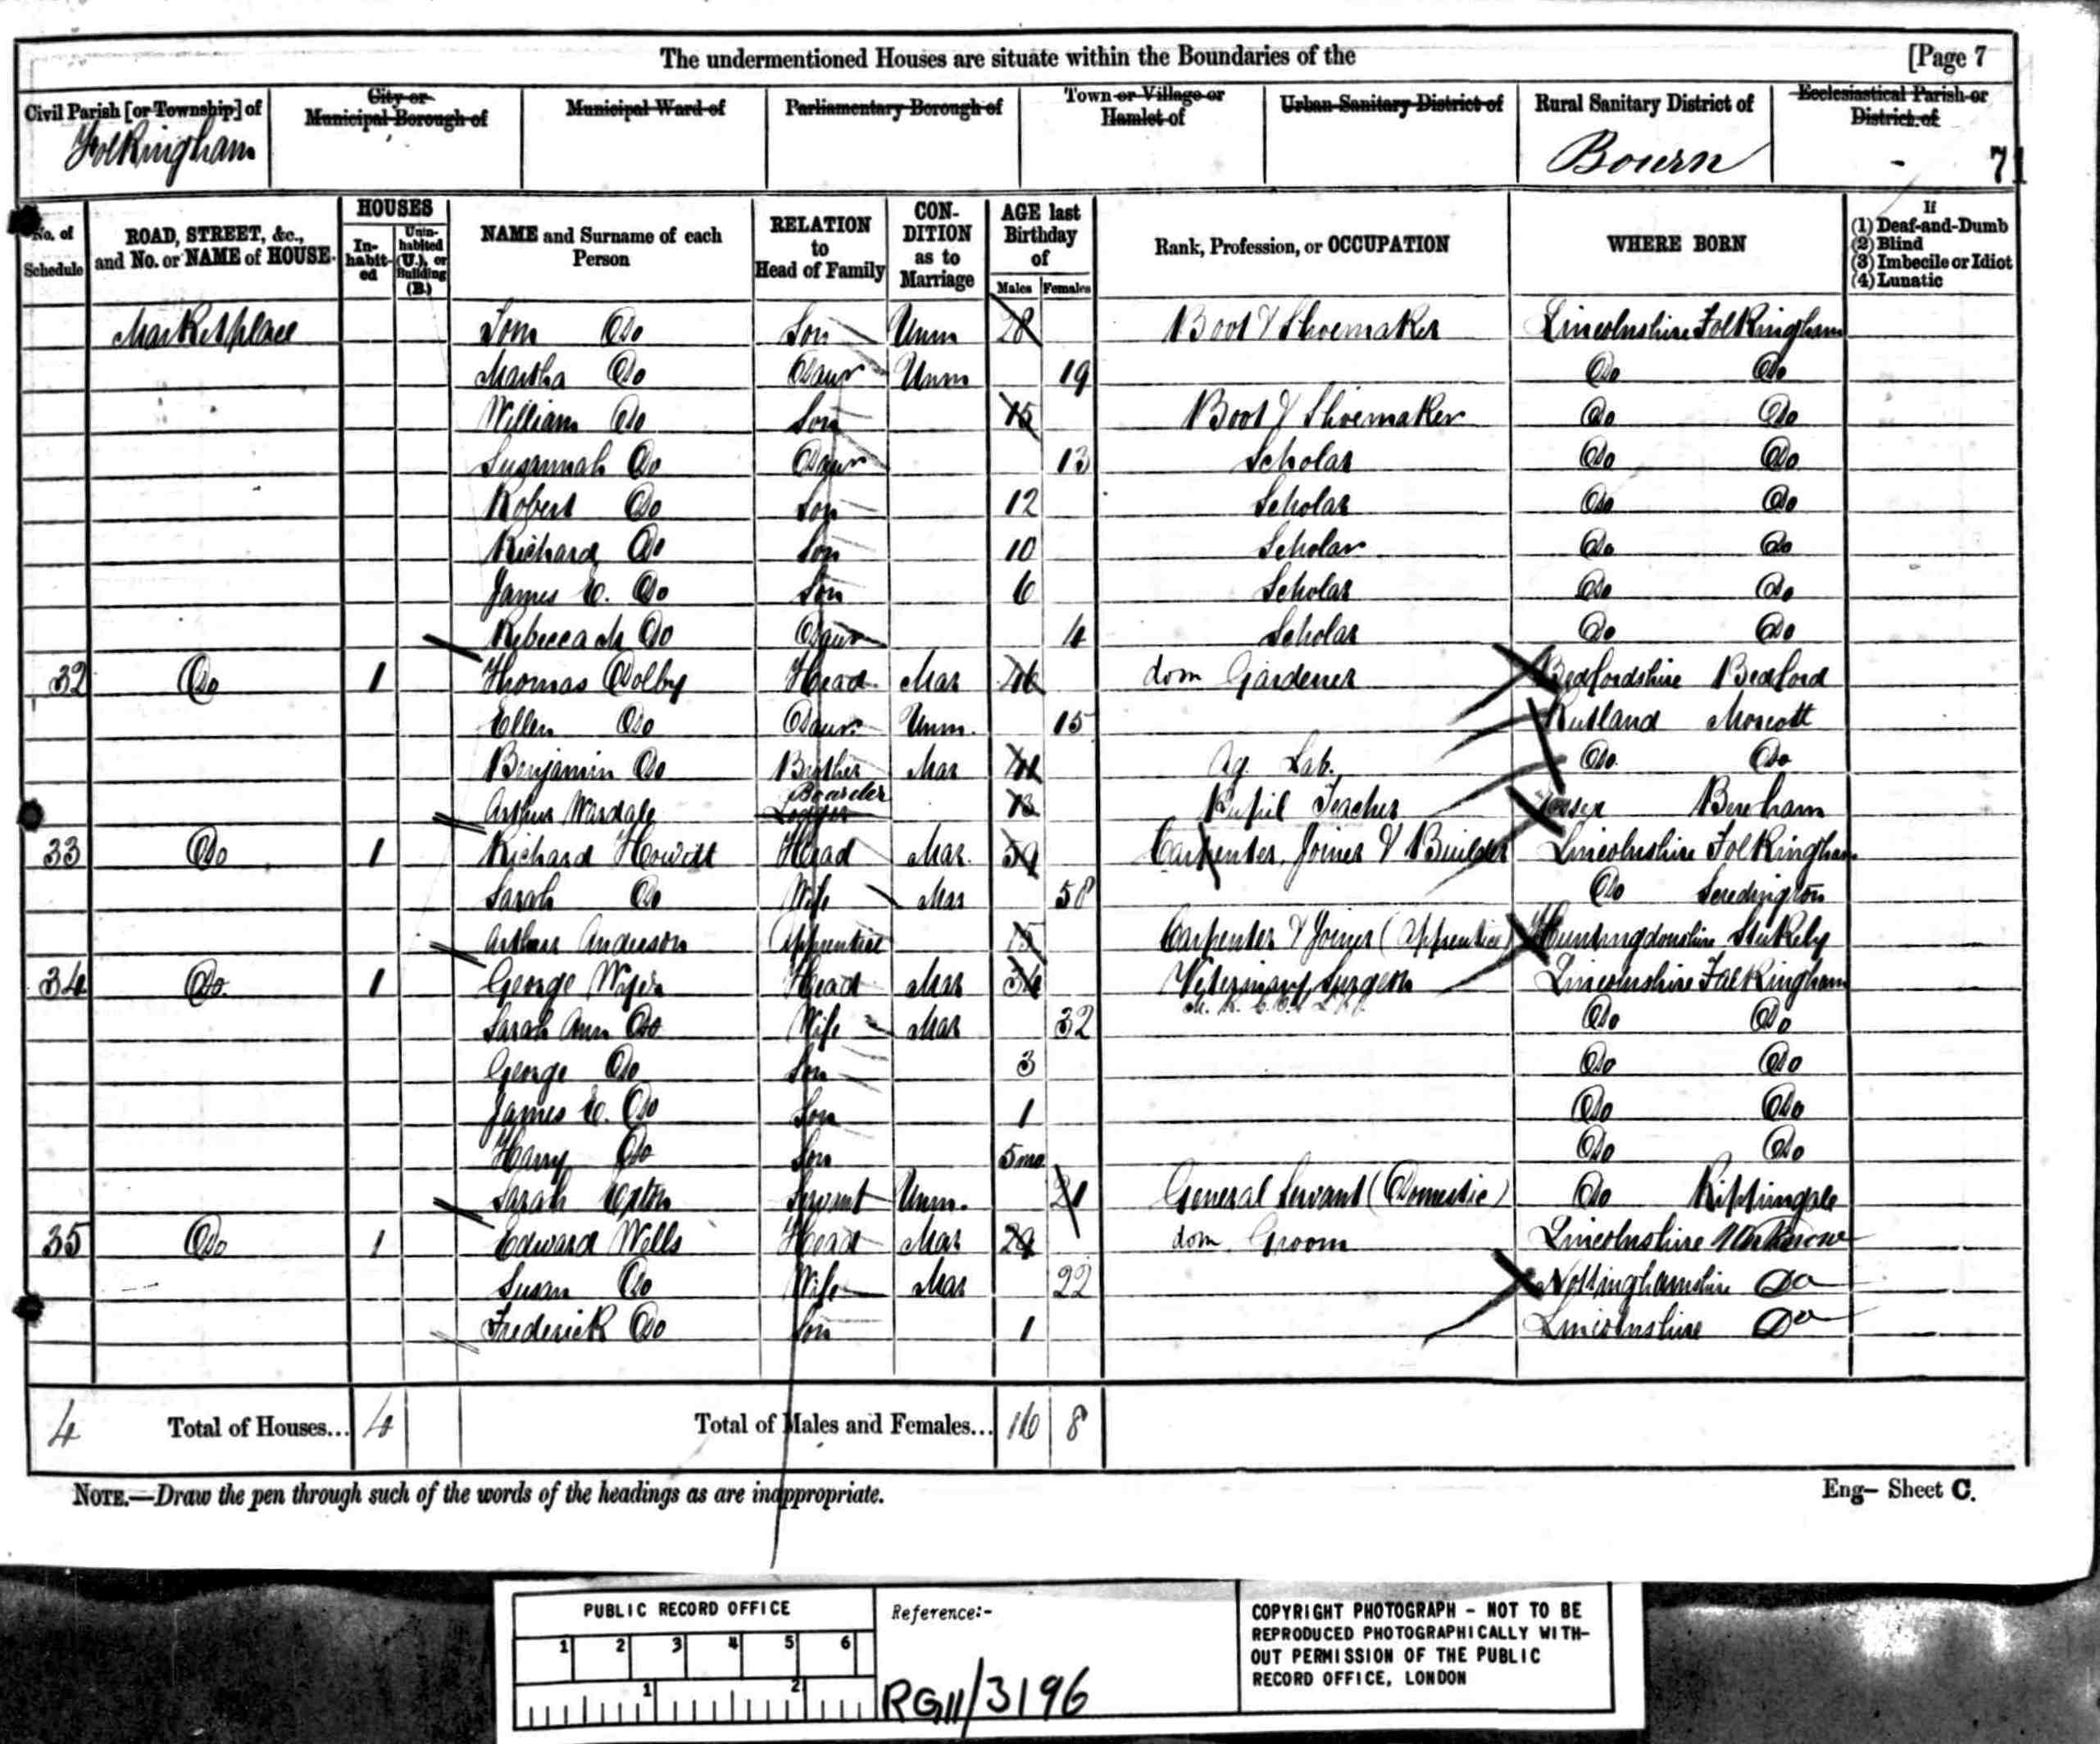 The undermentioned Houses are situate within the Boundaries of the [Page 7
Civil Parish [or Township] of Folkingham
City or Municipal Borough of
Municipal Ward of
Parliamentary Borough of
Town or Village or Hamlet of
Urban Sanitary District of
Rural Sanitary District of Bourn
Ecclesiastical Parish or District of -
71
No. of Schedule
ROAD, STREET, &c., and No. or NAME of HOUSE
HOUSES
In-habit-ed
Unin-habited (U.), or Building (B.)
NAME and Surname of each Person
RELATION to Head of Family
CON-DITION as to Marriage
AGE last Birthday of
Males Females
Rank, Profession, or OCCUPATION
WHERE BORN
If
(1) Deaf-and-Dumb
(2) Blind
(3) Imbecile or Idiot
(4) Lunatic
Marketplace Tom Do Son Unm 28 Boot & Shoemaker Lincolnshire Folkingham
Martha Do Daur Unm 19 Do Do
William Do Son 15 Boot & Shoemaker Do Do
Susannah Do Daur 13 Scholar Do Do
Robert Do Son 12 Scholar Do Do
Richard Do Son 10 Scholar Do Do
James E. Do Son 6 Scholar Do Do
Rebecca M Do Daur 4 Scholar Do Do
32 Do 1 Thomas Dolby Head Mar dom Gardener Bedfordshire Bedford
Ellen Do Daur. Unm. 15 Rutland Morcott
Benjamin Do Brother Mar Ag. Lab. Do Do
Arthur Wardale Boarder Lodger Pupil Teacher Essex
33 Do 1 Richard Howitt Head Mar. 59 Carpenter, Joiner & Builder Lincolnshire Folkingham
Sarah Do Wife Mar 58 Do Scredington
Arthur Anderson Apprentice 15 Carpenter & Joiner (Apprentice) Huntingdonshire Stukely
34 Do. 1 George Wyer Head Mar 34 Veterinary Surgeon Lincolnshire Folkingham
Sarah Ann Do Wife Mar 32 Do Do
George Do Son 3 Do Do
James E. Do Son 1 Do Do
Harry Do Son 5mo Do Do
Sarah Exton Servant Unm. 21 General Servant (Domestic) Do Rippingale
35 Do 1 Edward Wells Head Mar 29 dom Groom Lincolnshire Unknown
Susan Do Wife Mar 22 Nottinghamshire Do
Frederick Do Son 1 Lincolnshire Do
4 Total of Houses... 4 Total of Males and Females... 16 8
NOTE.—Draw the pen through such of the words of the headings as are inappropriate.
Eng- Sheet C.
PUBLIC RECORD OFFICE
1 2 3 4 5 6
1 2
Reference:-
RG11/3196
COPYRIGHT PHOTOGRAPH - NOT TO BE
REPRODUCED PHOTOGRAPHICALLY WITH-
OUT PERMISSION OF THE PUBLIC
RECORD OFFICE, LONDON